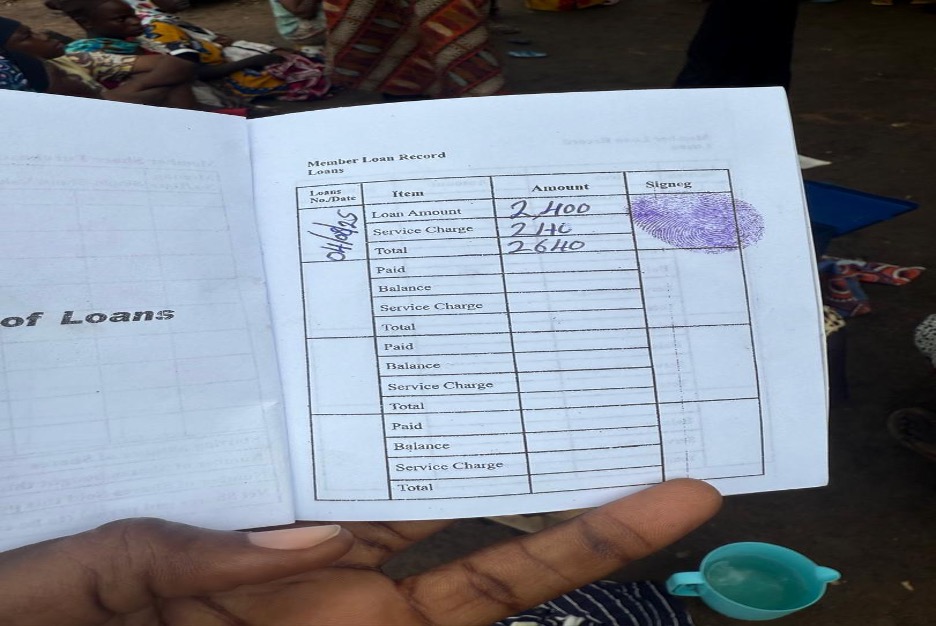 of Loans
Member Loan Record
Loans
Loans No./Date Item Amount Signeg
04/09/25 Loan Amount 2,400
Service Charge 240
Total 2640
Paid
Balance
Service Charge
Total
Paid
Balance
Service Charge
Total
Paid
Balance
Service Charge
Total